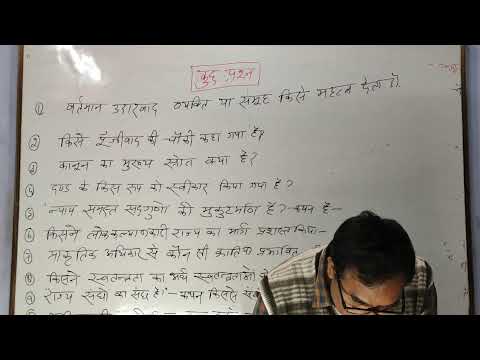 कुछ प्रश्न
① वर्तमान उदारवाद व्यक्ति या समूह किसे महत्व देता है।
② किसे पूँजीवाद की चौकी कहा गया है?
③ कानून का मुख्य स्रोत क्या है?
④ दण्ड के किस रूप को स्वीकार किया गया है?
⑤ न्याय समस्त सद्गुणों की मुकुटमणि है?-कथन है-
⑥ किसने लोककल्याणकारी राज्य का मार्ग प्रशस्त किया-
⑦ प्राकृतिक अधिकार से कौन सी क्रान्तिया प्रभावित
⑧ किसने स्वतन्त्रता का अर्थ
⑨ राज्य संघो का संघ है।- कथन किससे